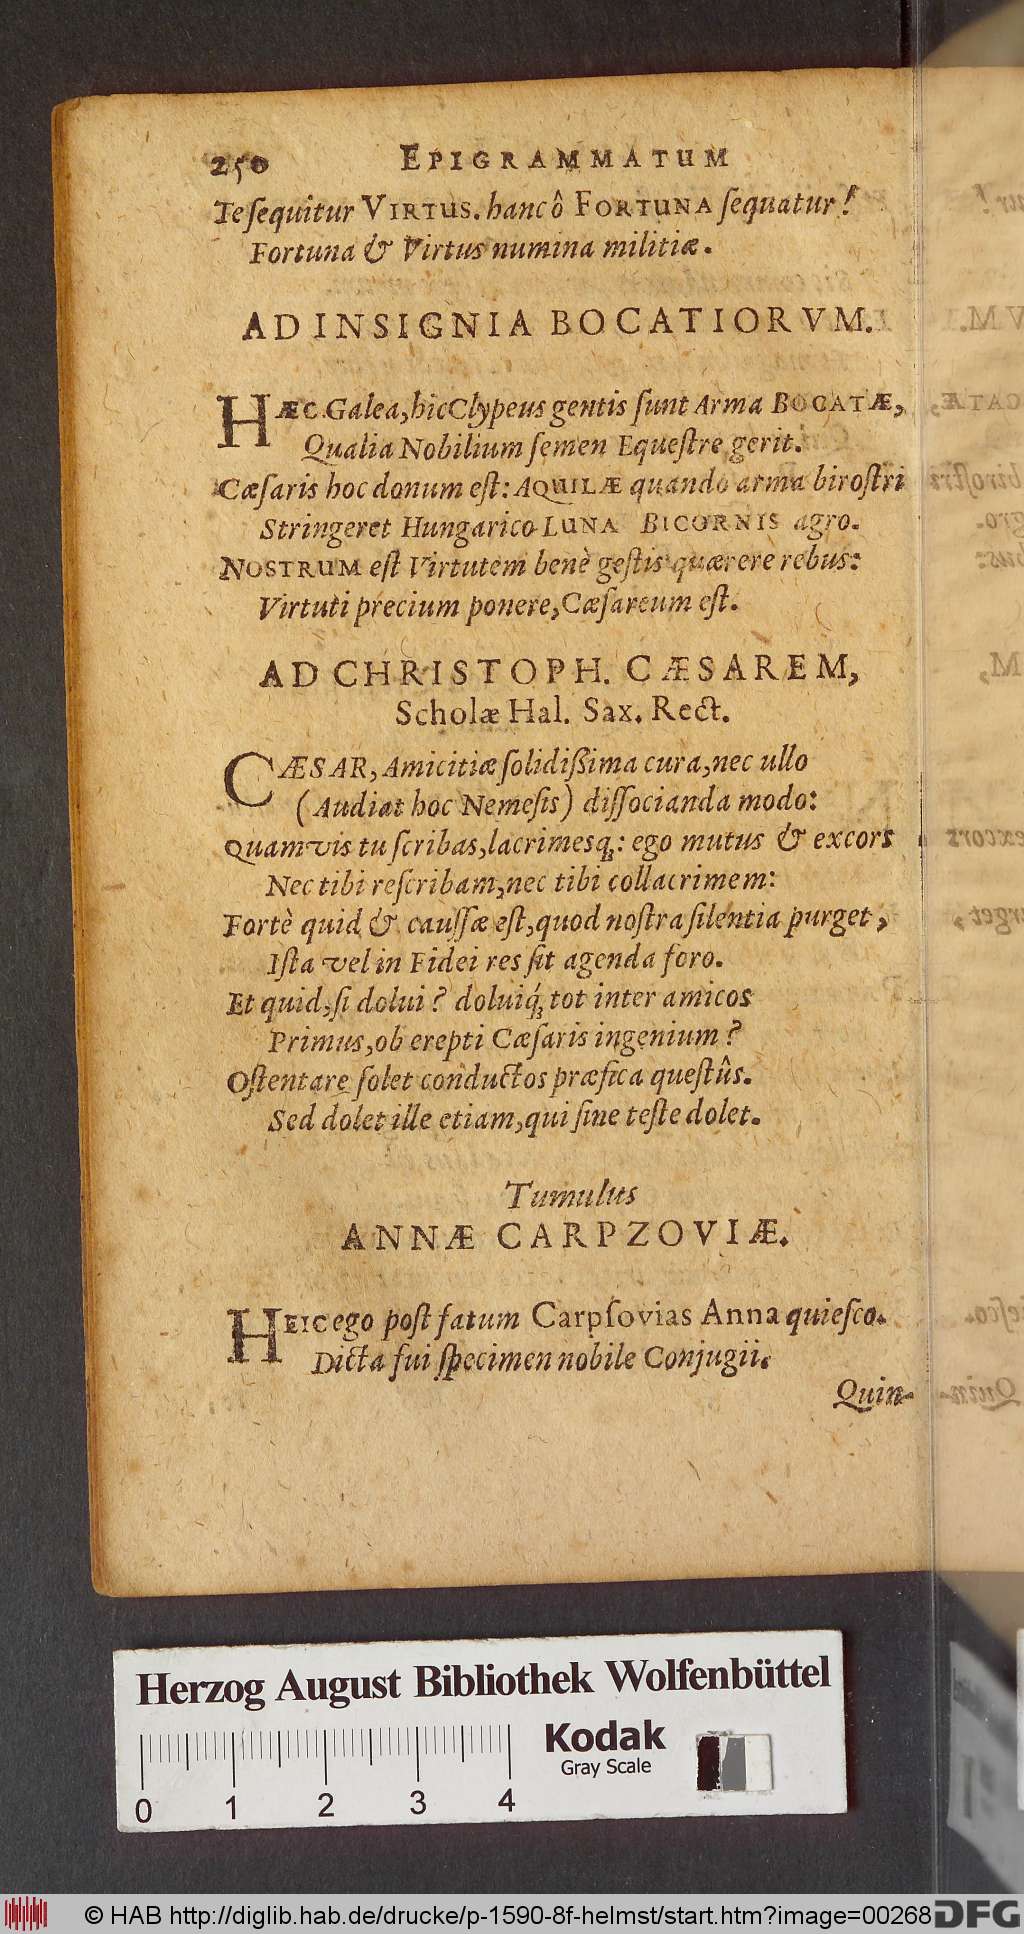 250 EPIGRAMMATUM
Te sequitur VIRTUS. hanc ô FORTUNA sequatur!
Fortuna & Virtus numina militiæ.
AD INSIGNIA BOCATIORVM.
HÆC Galea, hic Clypeus gentis sunt Arma BOCATÆ,
Qualia Nobilium semen Equestre gerit.
Cæsaris hoc donum est: AQUILÆ quando arma birostri
Stringeret Hungarico LUNA BICORNIS agro.
NOSTRUM est Virtutem benè gestis quærere rebus:
Virtuti precium ponere, Cæsareum est.
AD CHRISTOPH. CÆSAREM,
Scholæ Hal. Sax. Rect.
CÆSAR, Amicitiæ solidißima cura, nec ullo
(Audiat hoc Nemesis) dissocianda modo:
Quamvis tu scribas, lacrimesq;: ego mutus & excors
Nec tibi rescribam, nec tibi collacrimem:
Fortè quid & caussæ est, quod nostra silentia purget,
Ista vel in Fidei res sit agenda foro.
Et quid, si dolui? doluiq́; tot inter amicos
Primus, ob erepti Cæsaris ingenium?
Ostentare solet conductos præfica questûs.
Sed dolet ille etiam, qui sine teste dolet.
Tumulus
ANNÆ CARPZOVIÆ.
HEIC ego post fatum Carpsovias Anna quiesco.
Dicta fui specimen nobile Conjugii.
Quin-
Herzog August Bibliothek Wolfenbüttel
Kodak
Gray Scale
0 1 2 3 4
© HAB http://diglib.hab.de/drucke/p-1590-8f-helmst/start.htm?image=00268
DFG